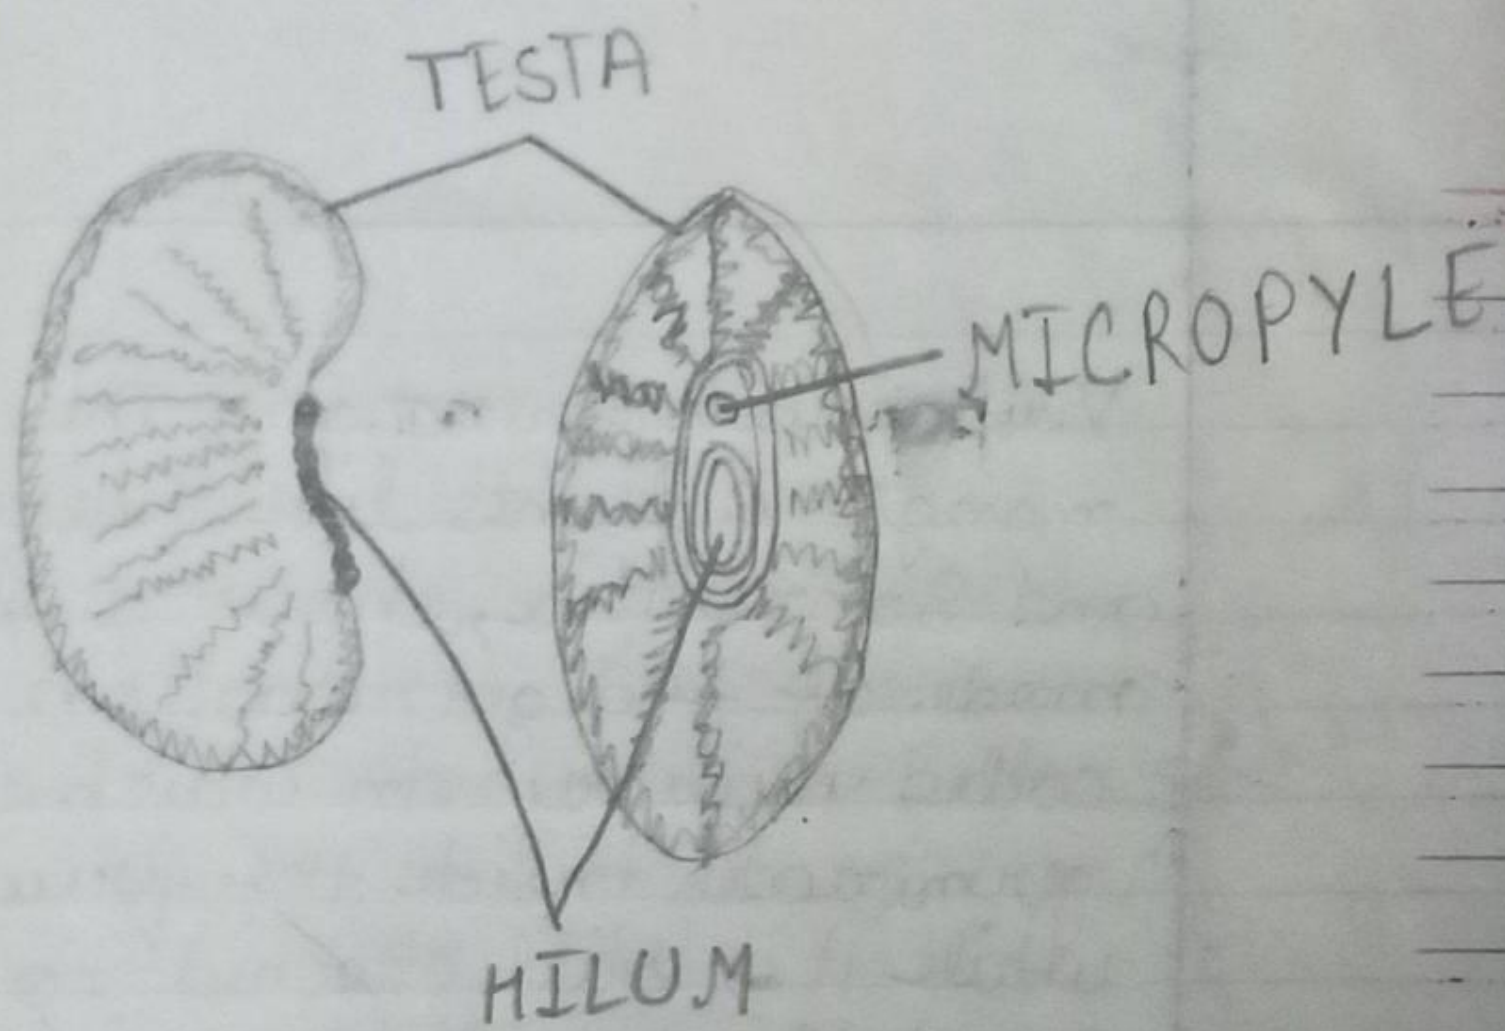 TESTA
MICROPYLE
HILUM